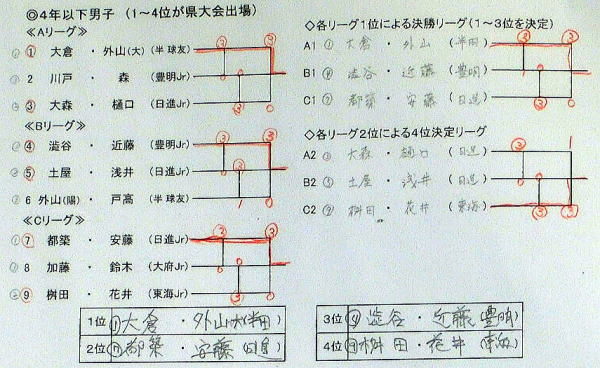 ◎4年以下男子（1～4位が県大会出場）
≪Aリーグ≫
① 大倉 ・ 外山(大) (半 球友)
2 川戸 ・ 森 (豊明Jr)
③ 大森 ・ 樋口 (日進Jr)
≪Bリーグ≫
④ 澁谷 ・ 近藤 (豊明Jr)
⑤ 土屋 ・ 浅井 (日進Jr)
6 外山(陽) ・ 戸高 (半 球友)
≪Cリーグ≫
⑦ 都築 ・ 安藤 (日進Jr)
8 加藤 ・ 鈴木 (大府Jr)
⑨ 桝田 ・ 花井 (東海Jr)
◇各リーグ1位による決勝リーグ（1～3位を決定）
A1 ① 大倉 ・ 外山 (半田)
B1 ④ 澁谷 ・ 近藤 (豊明)
C1 ⑦ 都築 ・ 安藤 (日進)
◇各リーグ2位による4位決定リーグ
A2 ③ 大森 ・ 樋口 (日進)
B2 ⑤ 土屋 ・ 浅井 (日進)
C2 ⑨ 桝田 ・ 花井 (東海)
1位 ① 大倉 ・ 外山大(半田)
2位 ⑦ 都築 ・ 安藤(日進)
3位 ④ 澁谷 ・ 近藤(豊明)
4位 ⑨ 桝田 ・ 花井(東海)